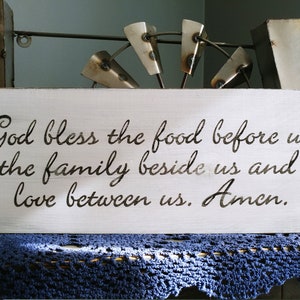 God bless the food before u
the family beside us and
love between us. Amen.